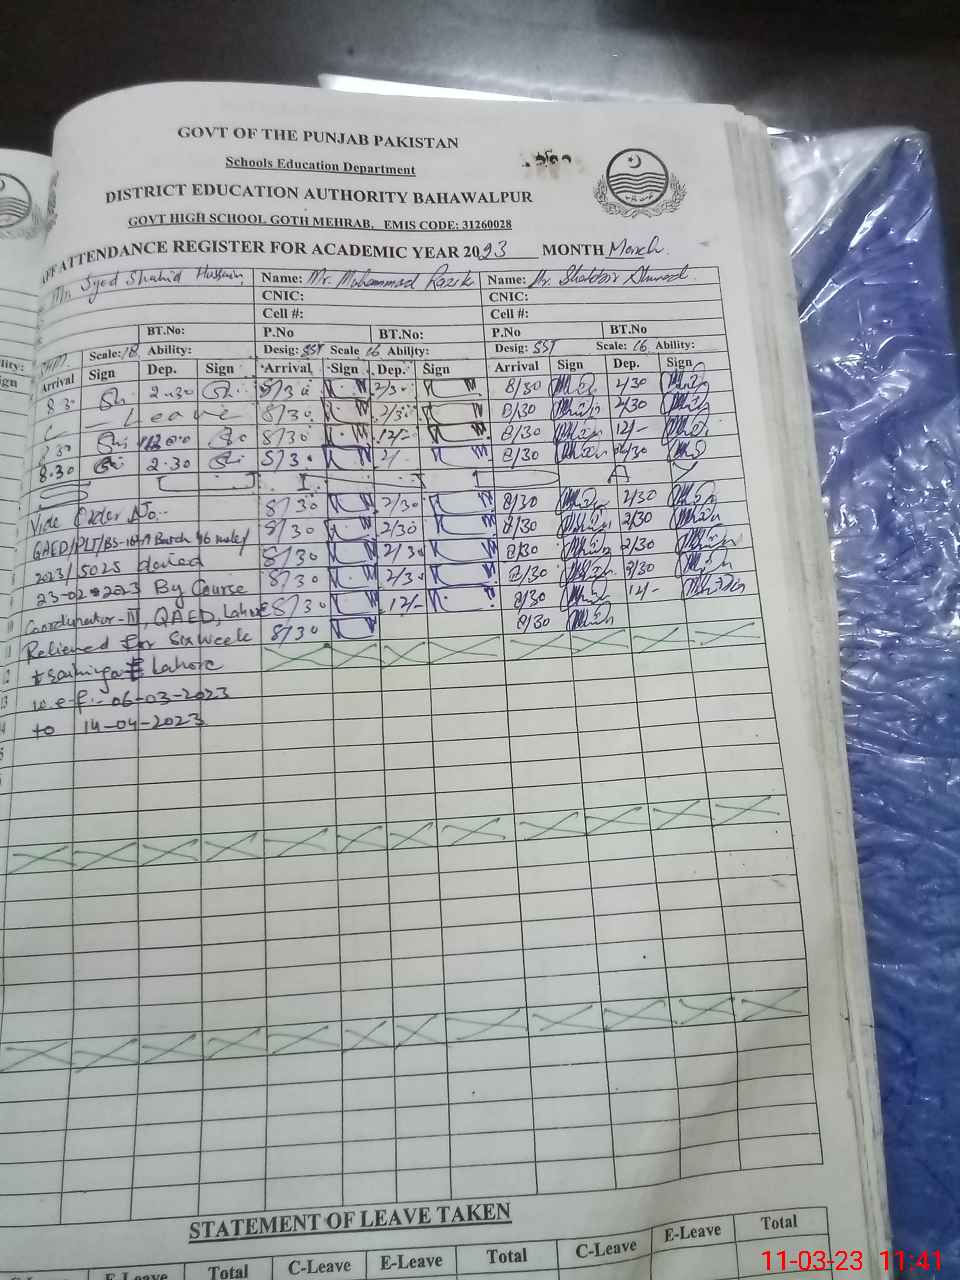 GOVT OF THE PUNJAB PAKISTAN
Schools Education Department
DISTRICT EDUCATION AUTHORITY BAHAWALPUR
GOVT HIGH SCHOOL GOTH MEHRAB, EMIS CODE: 31260028
ATTENDANCE REGISTER FOR ACADEMIC YEAR 2023 MONTH March
Mr. Syed Shahid Hussain Name: Mr. Muhammad Razik Name: Mr. Shabbir Ahmad
CNIC: CNIC:
Cell #: Cell #:
BT.No: P.No BT.No: P.No BT.No
Scale: 18 Ability: Desig: SST Scale 16 Ability: Desig: SST Scale: 16 Ability:
Arrival Sign Dep. Sign Arrival Sign Dep. Sign Arrival Sign Dep. Sign
8.30 2.30 8/30 2/30 8/30 2/30
Leave 8/30 2/30 8/30 2/30
8.30 12.00 8/30 12/- 8/30 12/-
8.30 2.30 8/30 2/- 8/30 2/30
S A
Vide Order No. 8/30 2/30 8/30 2/30
8/30 2/30 8/30 2/30
2023/5025 dated 8/30 2/30 8/30 2/30
23-02-2023 By Course 8/30 2/30 8/30 2/30
Coordinator-II, QAED, Lahore 8/30 12/- 8/30 12/-
Relieved for Six week 8/30 8/30
11
12 Lahore
13 w.e.f:- 06-03-2023
to 14-04-2023
STATEMENT OF LEAVE TAKEN
E-Leave Total C-Leave E-Leave Total C-Leave E-Leave Total
11-03-23 11:41